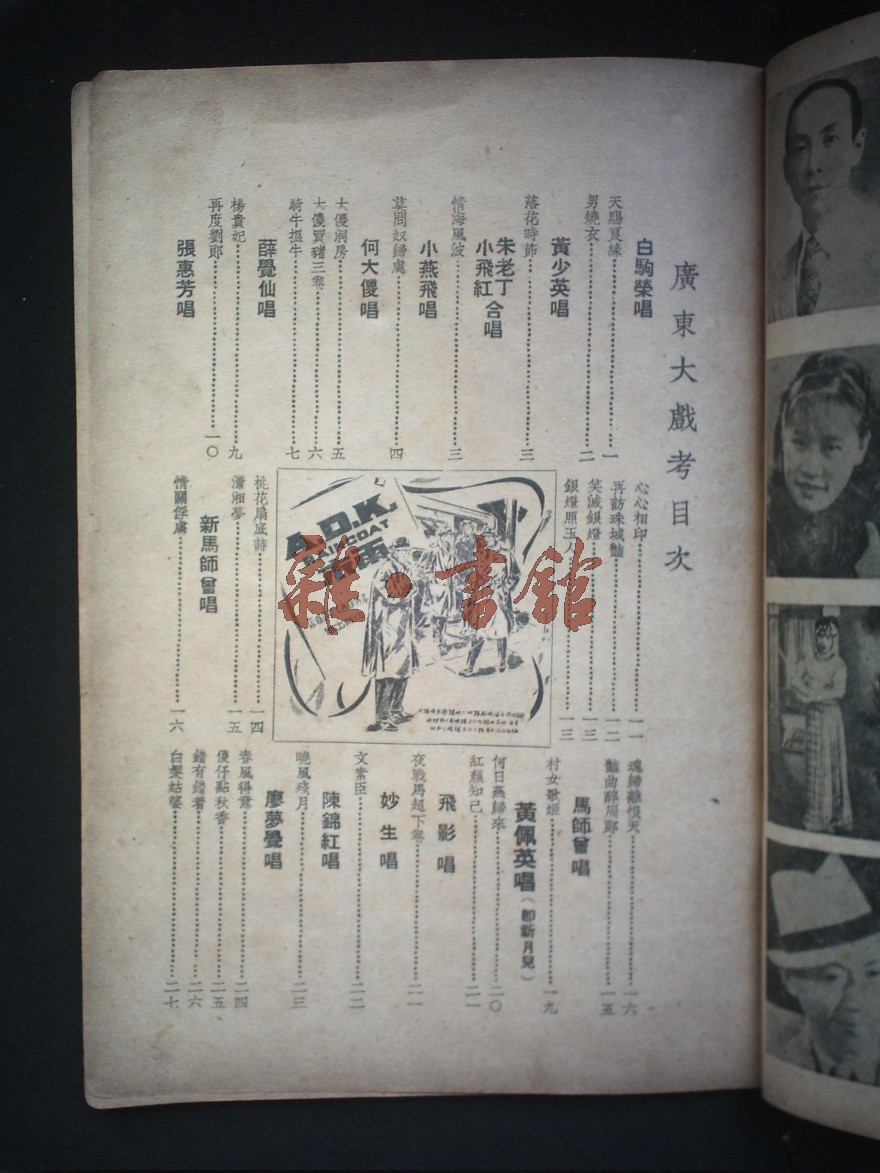 廣東大戲考目次
白駒榮唱
天賜良緣……一
男燒衣……二
黃少英唱
落花時節……三
朱老丁
小飛紅
合唱
情海風波……三
小燕飛唱
莫問奴歸處……四
何大傻唱
大傻洞房……五
大傻買豬三卷……六
騎牛搵牛……七
薛覺仙唱
楊貴妃……九
再度劉郎……一〇
張惠芳唱
心心相印……一一
再訪珠城艷……一二
笑滅銀燈……一三
銀燈照玉人……一三
A.D.K.
RAINCOAT
桃花扇底詩……一四
瀟湘夢……一五
新馬師曾唱
情關俘虜……一六
魂歸離恨天……一六
艷曲醉周郎……一五
馬師曾唱
村女歌姬……一九
黃佩英唱（即新月兒）
何日燕歸來……二〇
紅顏知己……二一
飛影唱
夜戰馬超下卷……二一
妙生唱
文素臣……二二
陳錦紅唱
曉風殘月……二三
廖夢覺唱
春風得意……二四
傻仔點秋香……二五
錯有錯着……二六
白髮姑婆……二七
雜·書館